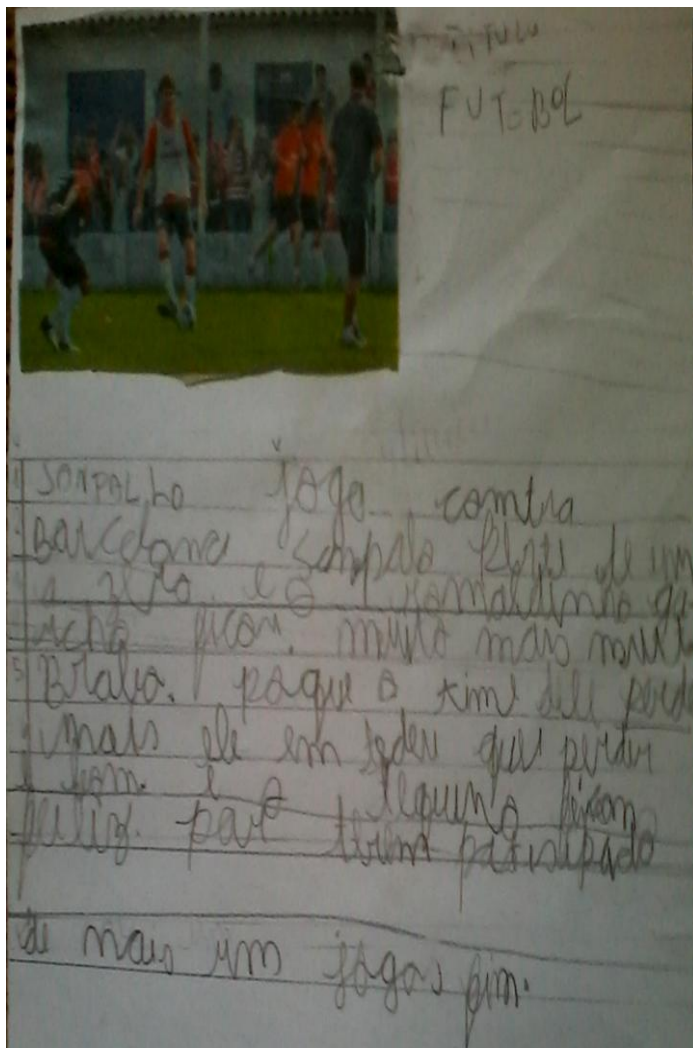 TITULO
FUTEBOL
SONPALHO jogo contra
Barcelona sonpalo perde de um
a zero. e o ronaldinho ga
ucho ficou. muito mais muito
Brabo. poque o time dele perd
mais ele em tedeu que perder
e bom. e o ficou
feliz. por terem patisipado
de mais um jogo fim.